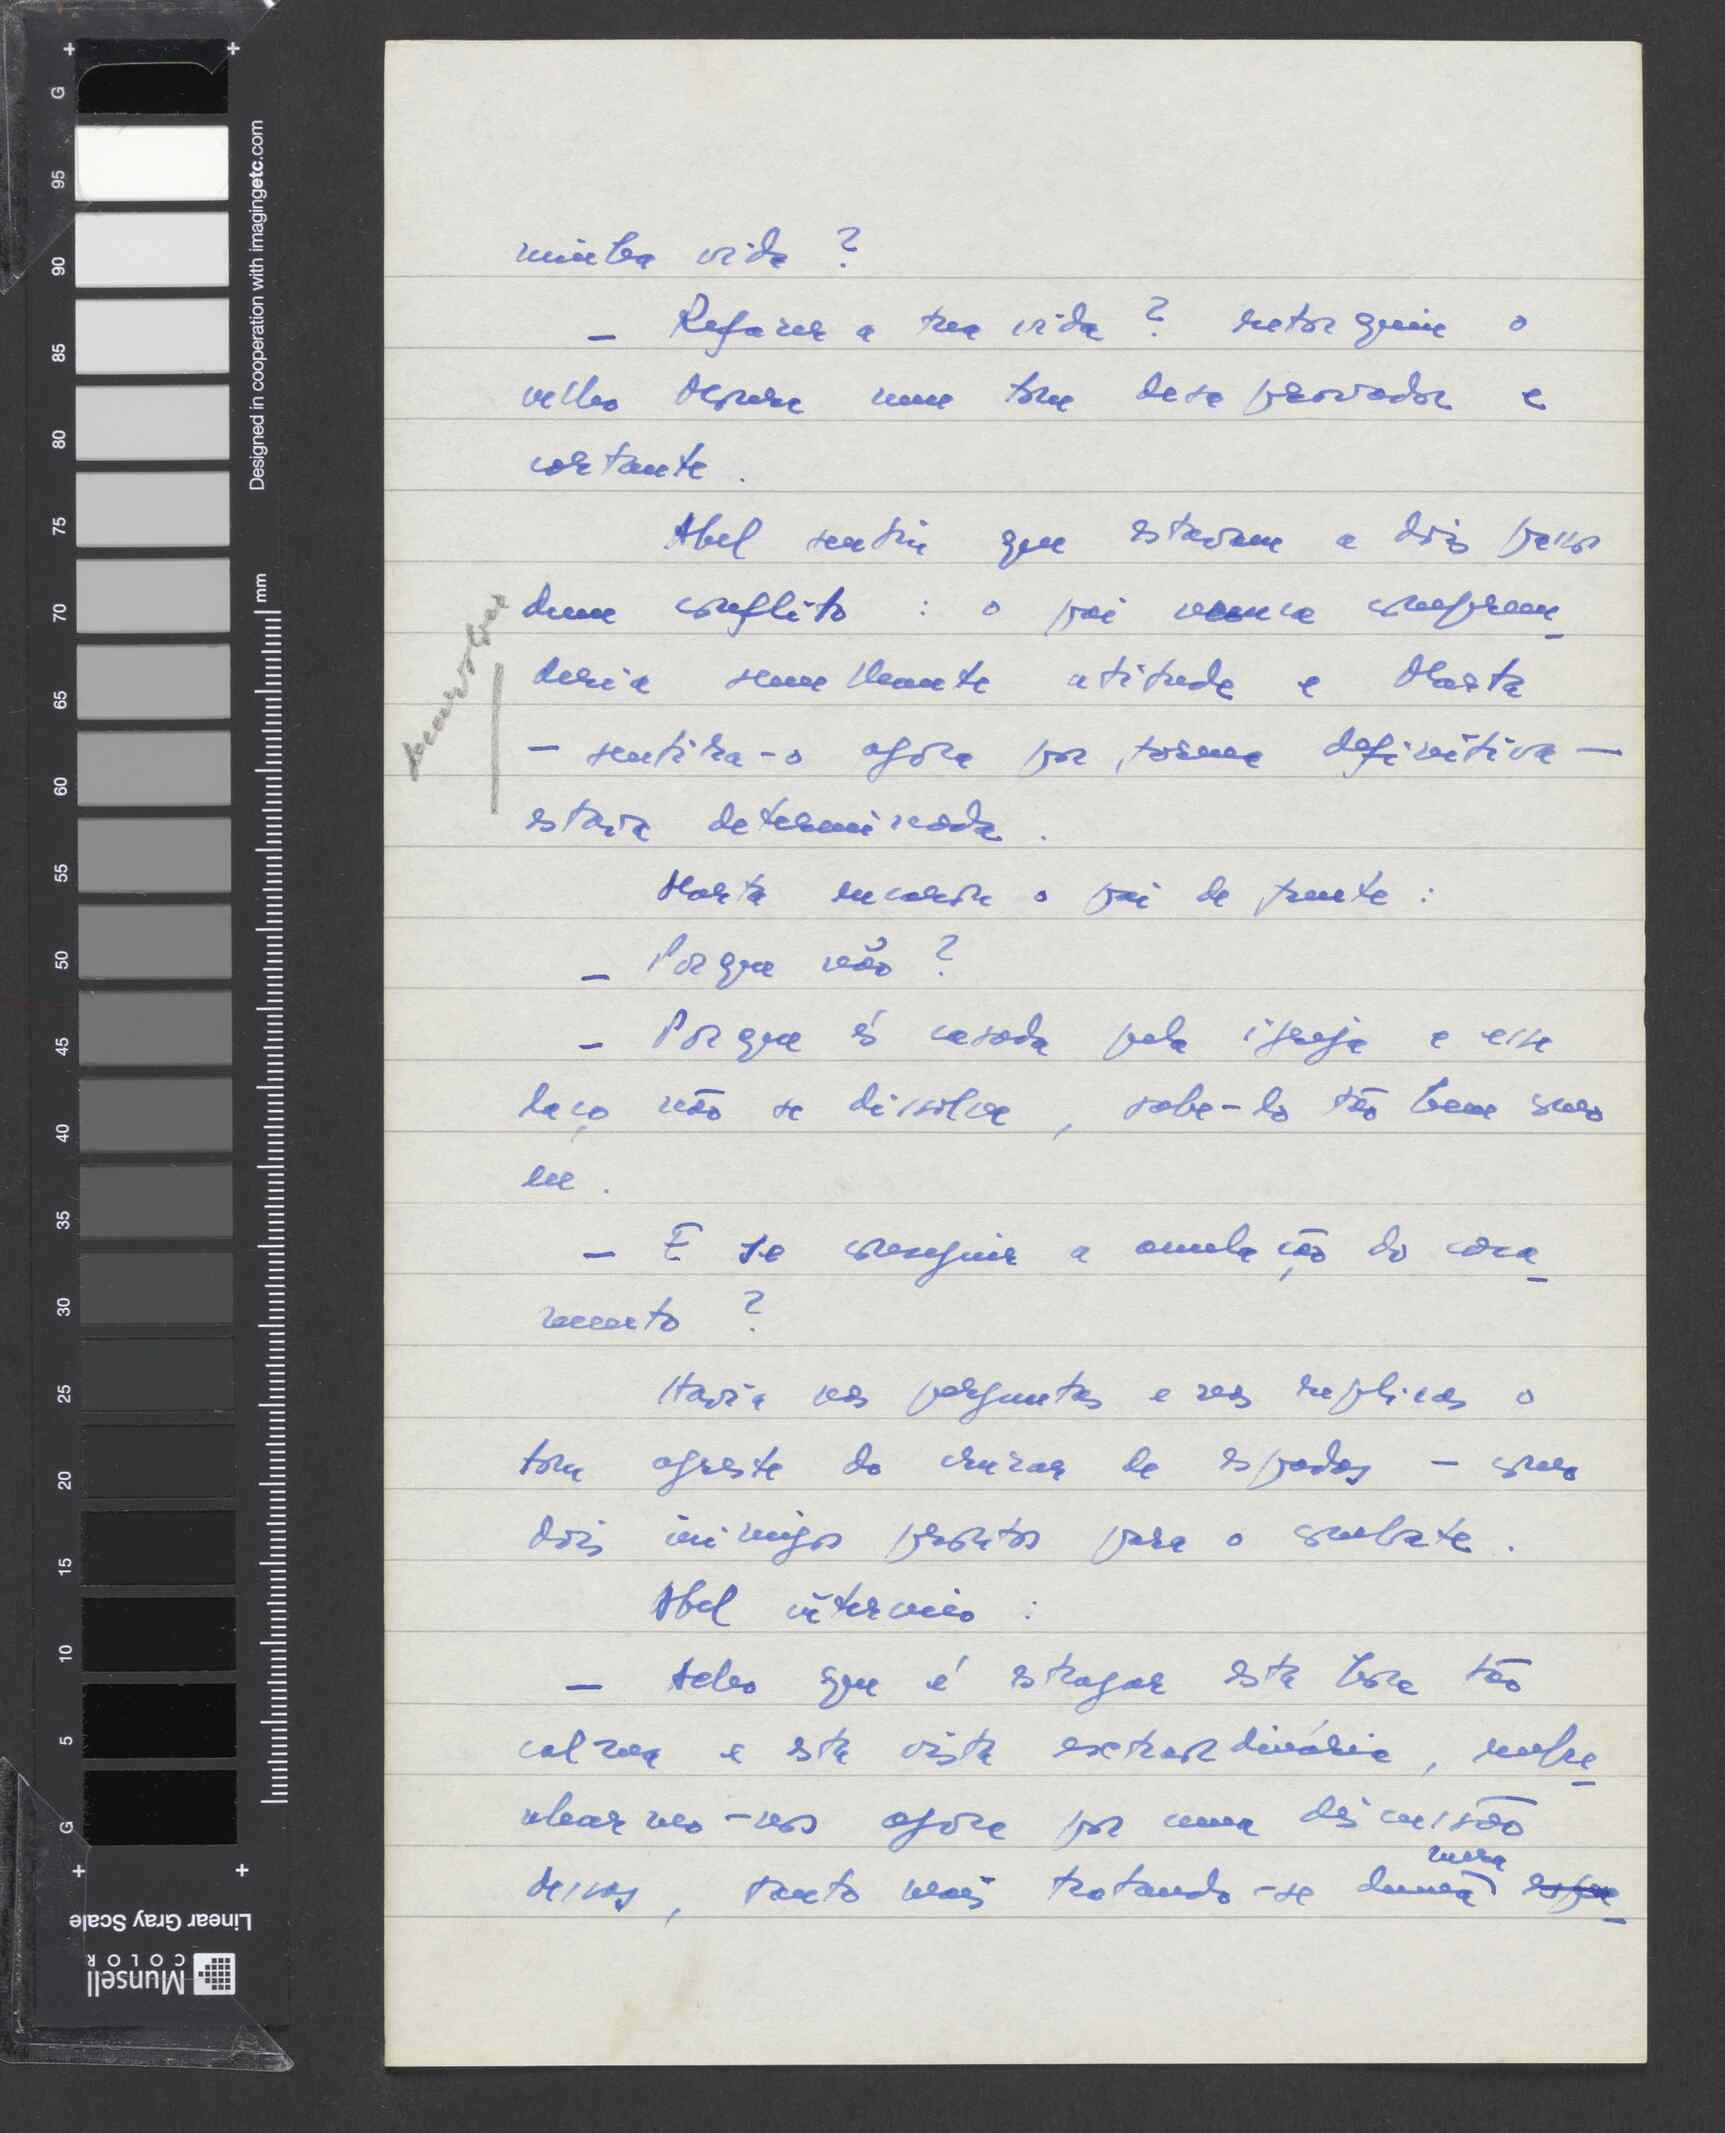 minha vida ?
– Refazer a tua vida ? retorquiu o
velho num tom desaprovador e
cortante .
Abel sentiu que estavam a dois passos
dum conflito : o pai nunca compreen-
deria semelhante atitude e Marta
– sentira-o agora por forma definitiva –
estava determinada .
Marta encarou o pai de frente :
– Porque não ?
– Porque és casada pela igreja e esse
laço não se dissolve , sabe-lo tão bem como
eu .
– E se conseguir a anulação do casa-
mento ?
Havia nas perguntas e nas replicas o
tom agreste do cruzar de espadas – como
dois inimigos prontos para o combate .
Abel interveio :
– Acho que é estragar esta hora tão
calma e esta vista extraordinária ,
-nos agora por uma discussão
dessas , tanto mais tratando-se duma mera
G 95 90 85 80 75 70 65 60 55 50 45 40 35 30 25 20 15 10 5 G
Designed in cooperation with imagingetc.com
mm
Linear Gray Scale
Munsell
COLOR